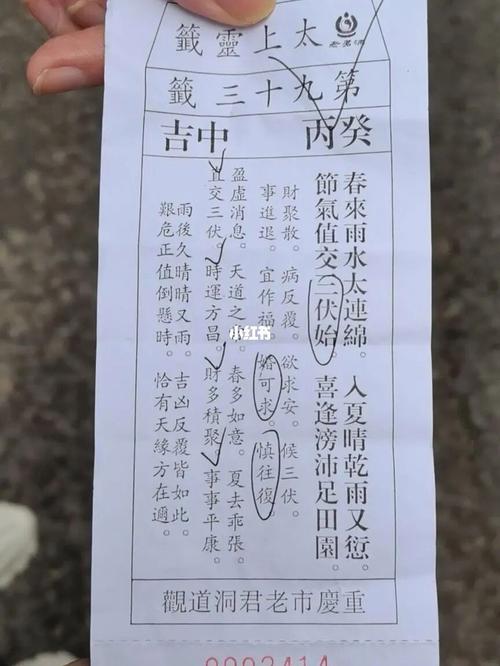 老君洞
太上靈籤
第九十三籤
癸丙 中吉
春來雨水太連綿。入夏晴乾雨又愆。
節氣值交三伏始。喜逢滂沛足田園。
財聚散。病反覆。欲求安。候三伏。
事進退。宜作福。婚可求。慎往復。
盈虛消息。天道之。春多如意。夏去乖張。
交三伏。時運方昌。財多積聚。事事平康。
雨後久晴晴又雨。吉凶反覆皆如此。
艱危正值倒懸時。恰有天緣方在邇。
重慶市老君洞道觀
小红书